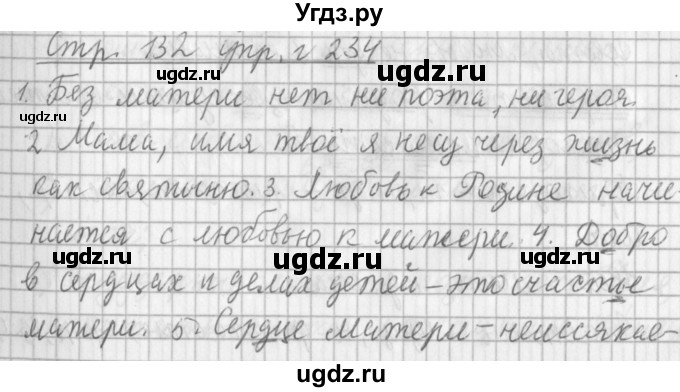 Угдз.ру
Стр. 132 упр. г 234
1. Без матери нет ни поэта, ни героя.
2 Мама, имя твоё я несу через жизнь
как святыню. 3. Любовь к Родине начи-
нается с любовью к матери. 4. Добро
в сердцах и делах детей – это счастье
матери. 5. Сердце матери – неиссякае-
Угдз.ру